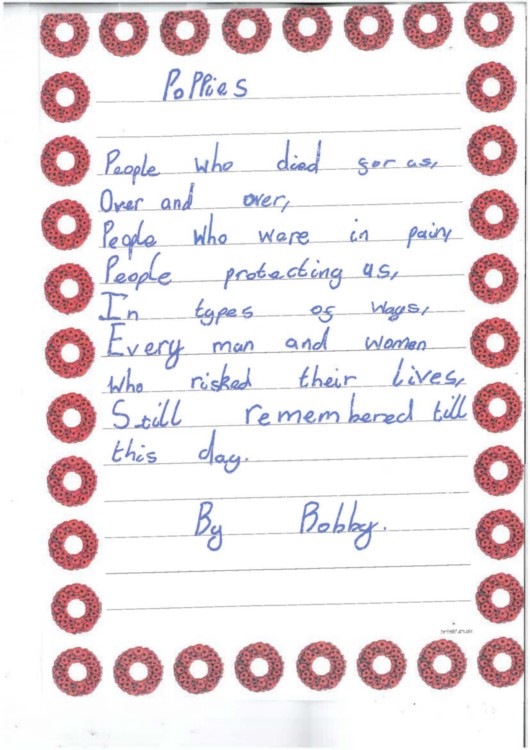 Poppies
People who died for us,
Over and over,
People who were in pain,
People protecting us,
In types of ways,
Every man and women
who risked their lives,
Still remembered till
this day.
By Bobby.